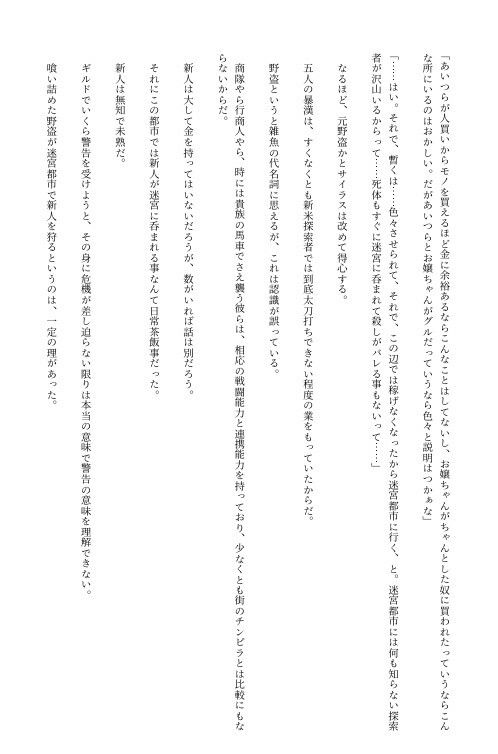 「あいつらが人買いからモノを買えるほど金に余裕あるならこんなことはしてないし、お嬢ちゃんがちゃんとした奴に買われたっていうならこん
な所にいるのはおかしい。だがあいつらとお嬢ちゃんがグルだっていうなら色々と説明はつかぁな」
「……はい。それで、暫くは……色々させられて、それで、この辺では稼げなくなったから迷宮都市に行く、と。迷宮都市には何も知らない探索
者が沢山いるからって……死体もすぐに迷宮に呑まれて殺しがバレる事もないって……」
なるほど、元野盗かとサイラスは改めて得心する。
五人の暴漢は、すくなくとも新米探索者では到底太刀打ちできない程度の業をもっていたからだ。
野盗というと雑魚の代名詞に思えるが、これは認識が誤っている。
商隊やら行商人やら、時には貴族の馬車でさえ襲う彼らは、相応の戦闘能力と連携能力を持っており、少なくとも街のチンピラとは比較にもな
らないからだ。
新人は大して金を持ってはいないだろうが、数がいれば話は別だろう。
それにこの都市では新人が迷宮に呑まれる事なんて日常茶飯事だった。
新人は無知で未熟だ。
ギルドでいくら警告を受けようと、その身に危機が差し迫らない限りは本当の意味で警告の意味を理解できない。
喰い詰めた野盗が迷宮都市で新人を狩るというのは、一定の理があった。